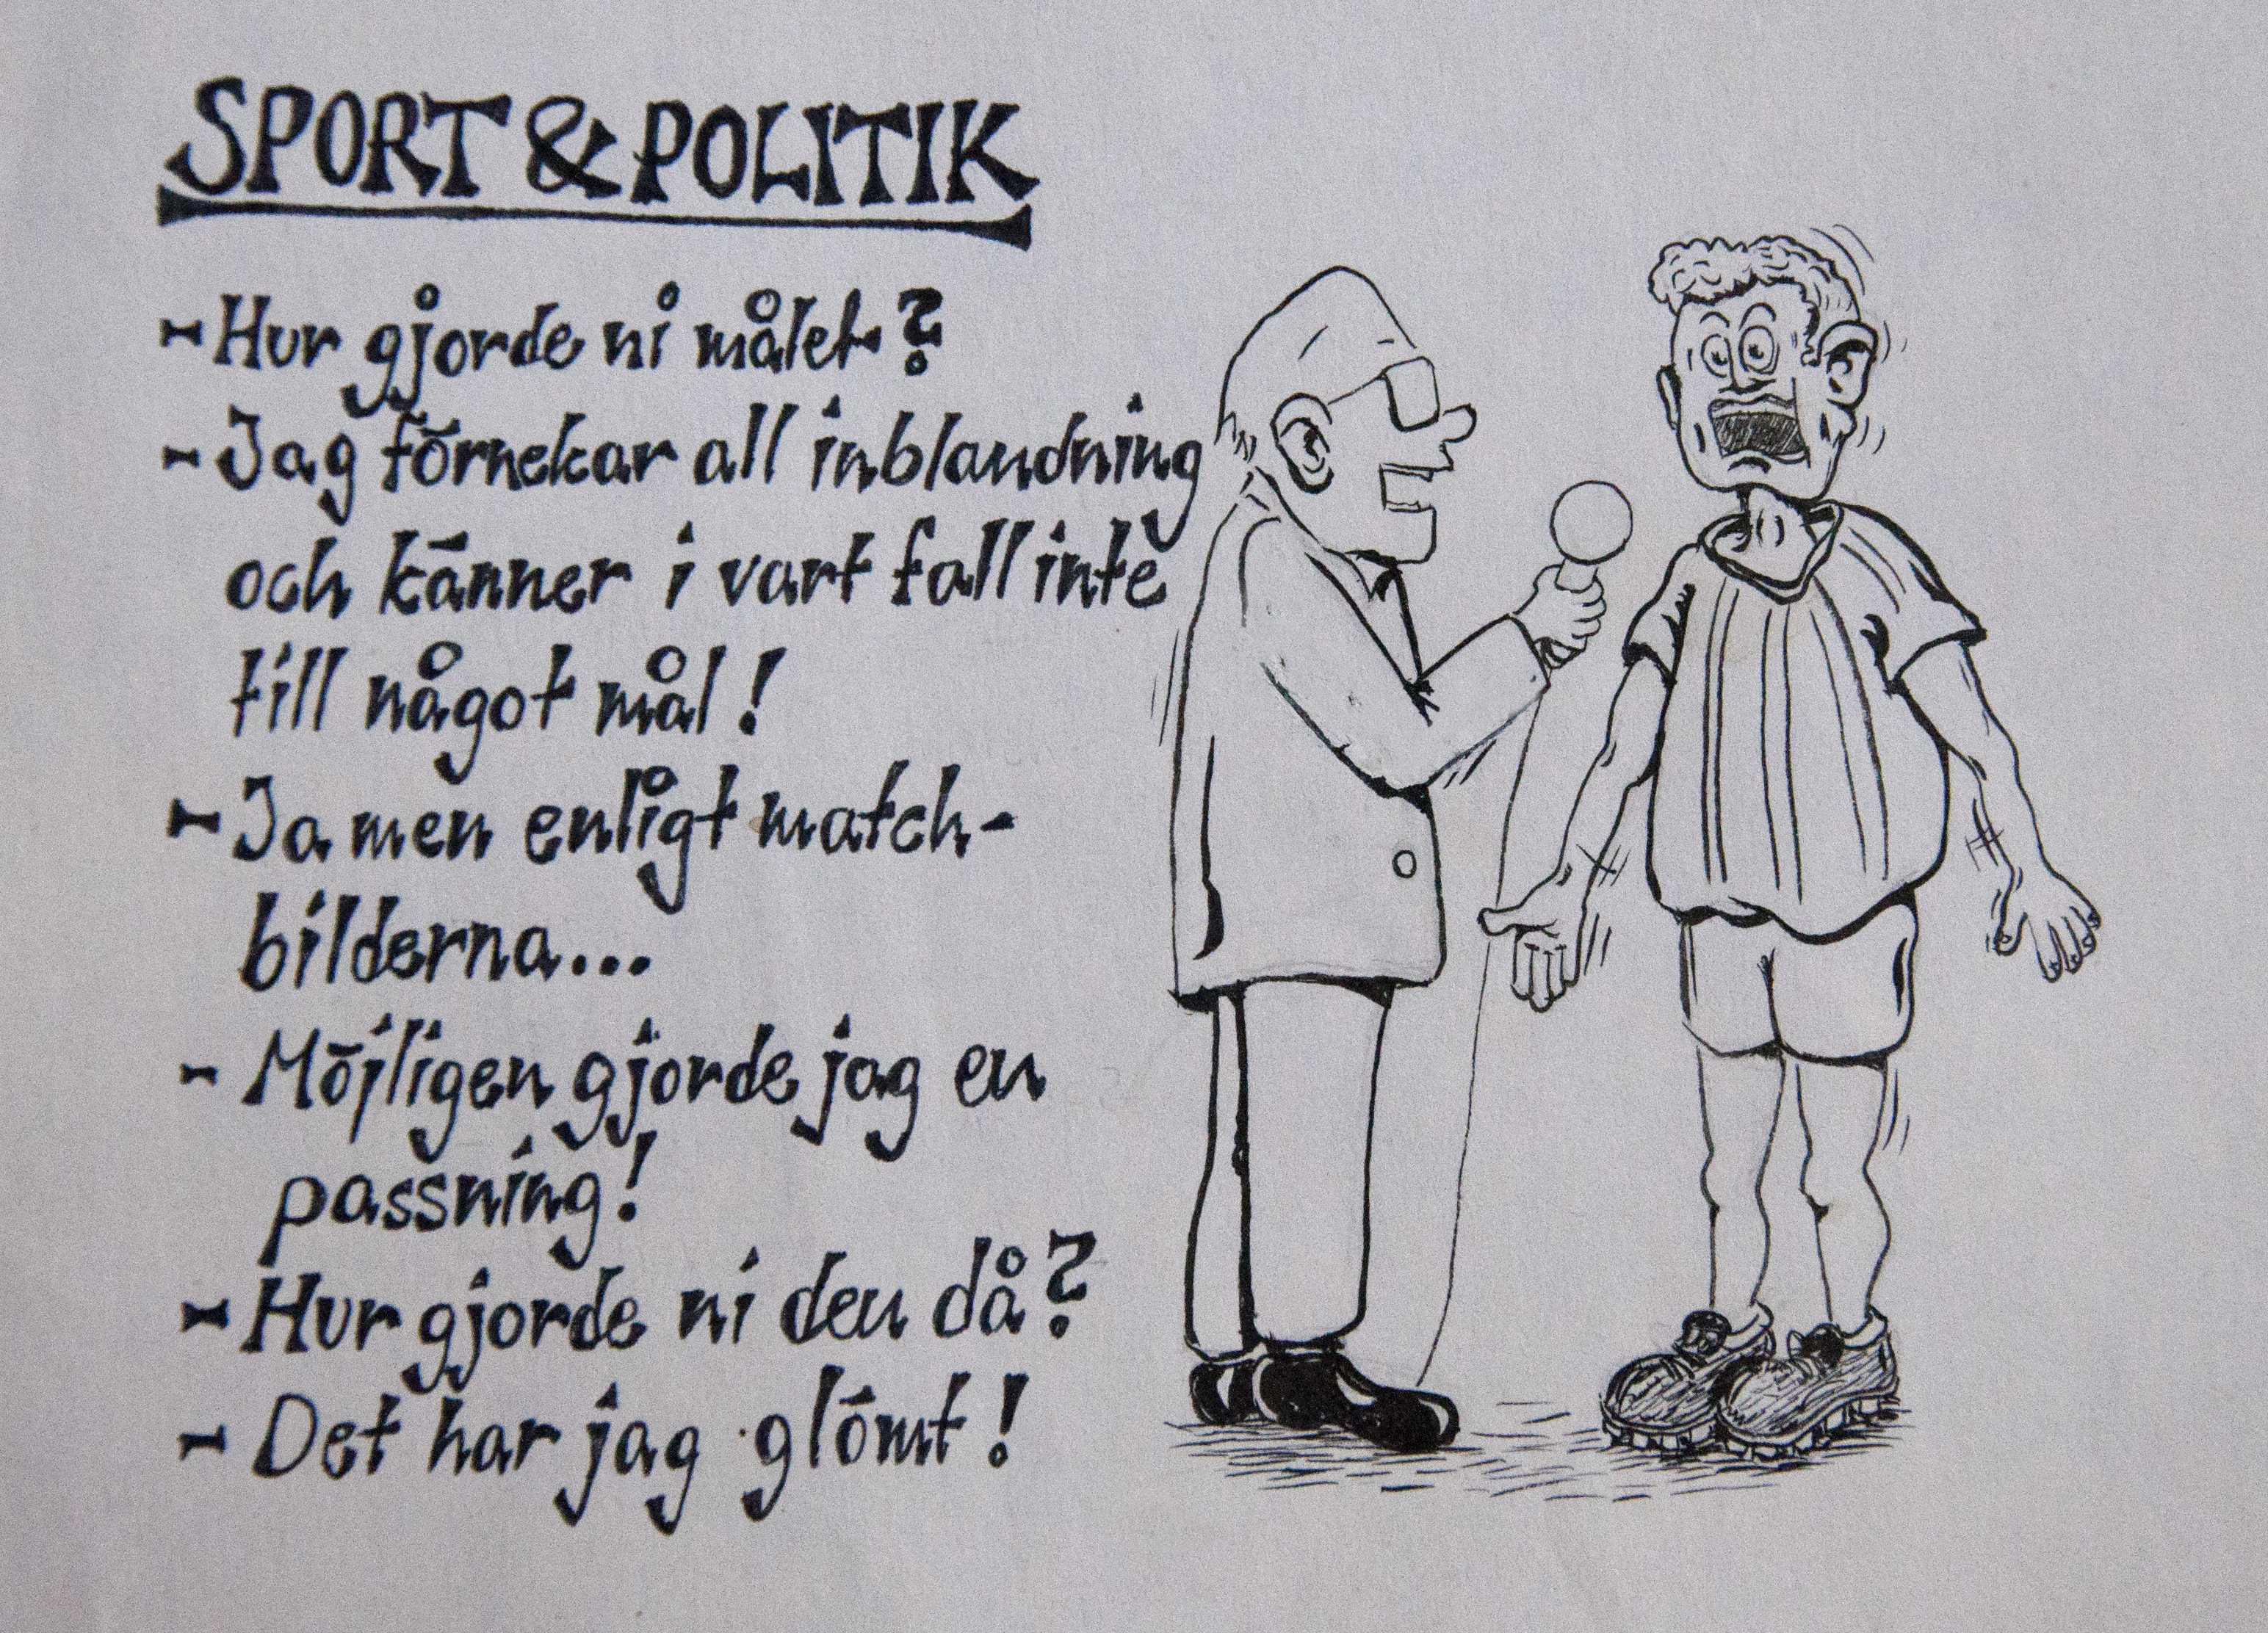 SPORT & POLITIK
- Hur gjorde ni målet?
- Jag förnekar all inblandning
och känner i vart fall inte
till något mål!
- Ja men enligt match-
bilderna...
- Möjligen gjorde jag en
passning!
- Hur gjorde ni den då?
- Det har jag glömt!